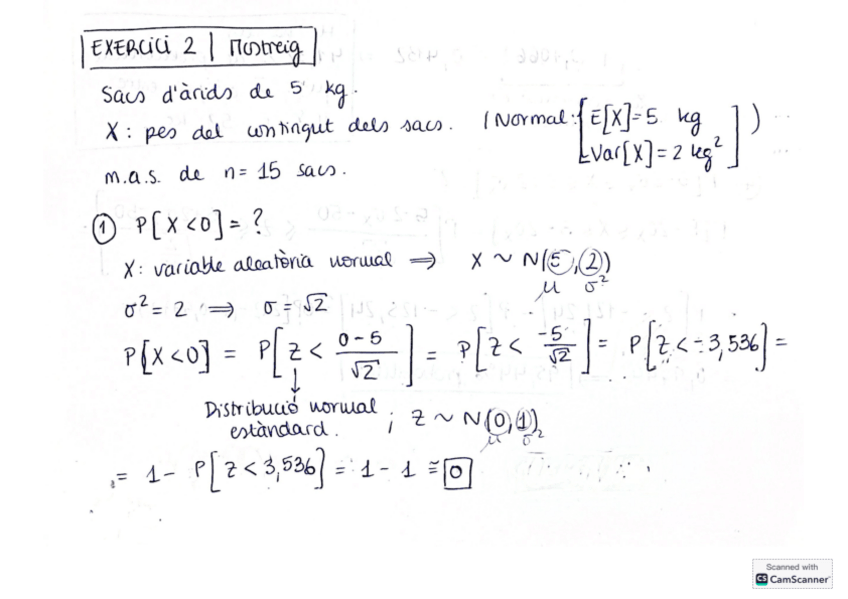 EXERCICI 2 | Mostreig
Sacs d'àrids de 5 kg.
X: pes del contingut dels sacs. (Normal: [E[X]=5 kg
Var[X]=2 kg²])
m.a.s. de n=15 sacs.
① P[X<0]=?
X: variable aleatòria normal ⟹ X ~ N(5,2)
μ σ²
σ²=2 ⟹ σ=√2
P[X<0] = P[Z < (0-5)/√2] = P[Z < -5/√2] = P[Z<-3,536] =
↓
Distribució normal estàndard. ; Z ~ N(0,1)
μ σ²
= 1 - P[Z<3,536] = 1 - 1 ≅ 0
Scanned with
CS CamScanner